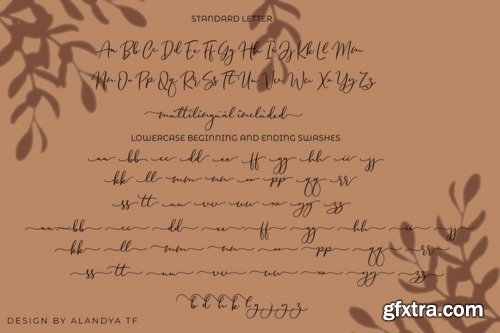 STANDARD LETTER
Aa Bb Cc Dd Ee Ff Gg Hh Ii Jj Kk Ll Mm
Nn Oo Pp Qq Rr Ss Tt Uu Vv Ww Xx Yy Zz
multilingüal included
LOWERCASE BEGINNING AND ENDING SWASHES
aa bb cc dd ee ff gg hh ii jj
kk ll mm nn oo pp qq rr
ss tt uu vv ww xx yy zz
aa bb cc dd ee ff gg hh ii jj
kk ll mm nn oo pp qq rr
ss tt uu vv ww xx yy zz
b d h k l g j y z
DESIGN BY ALANDYA TF
gfxtra.com